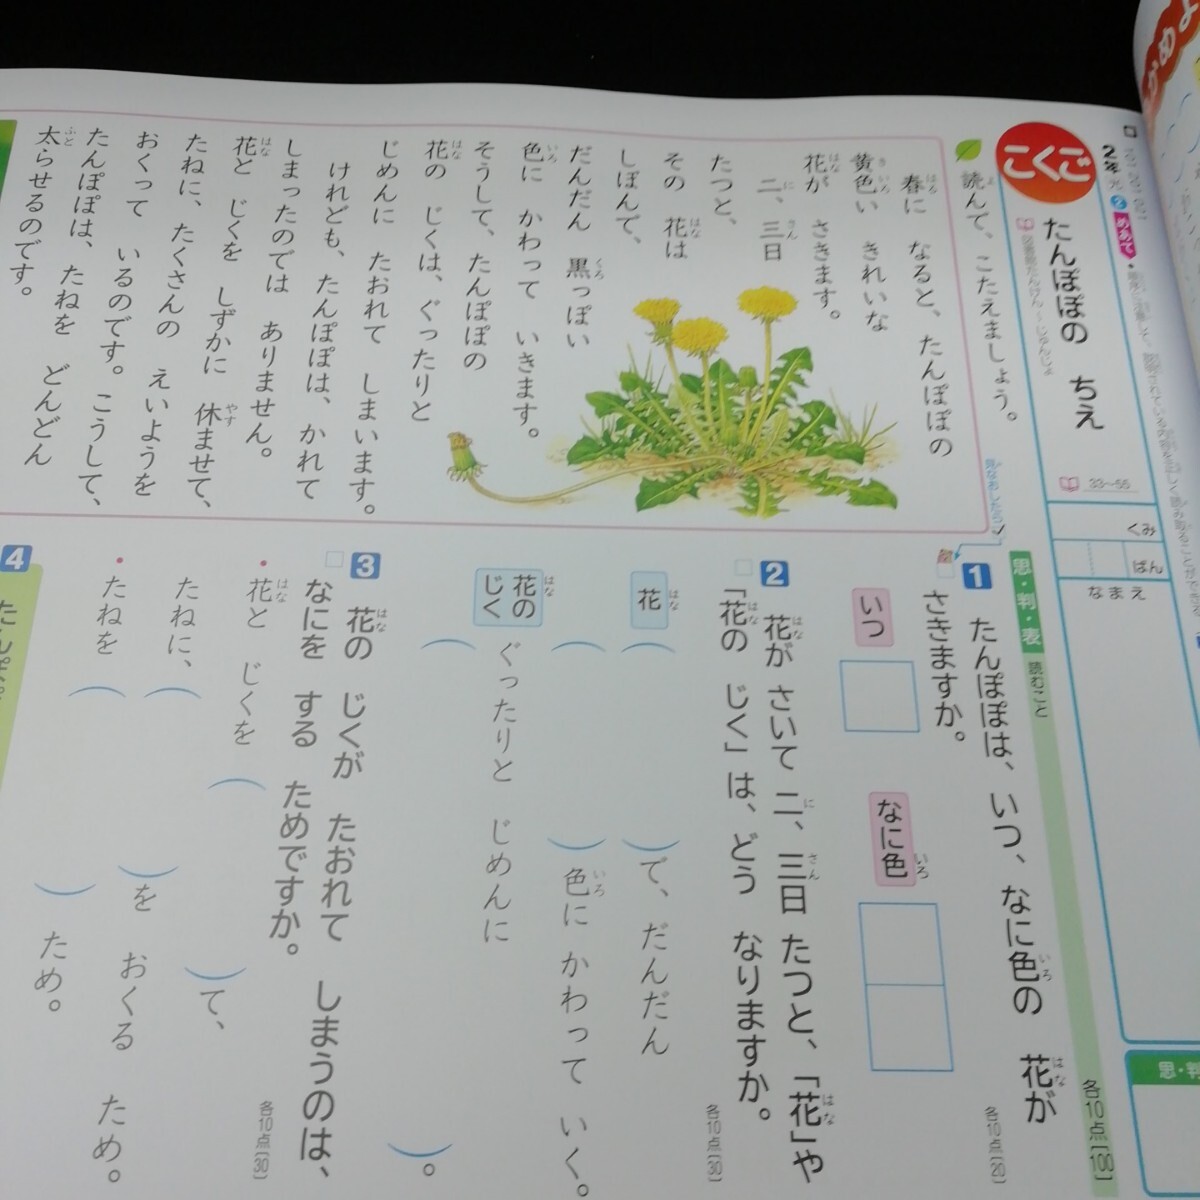 かめよ
こくご
2年
めあて
たんぽぽの ちえ
33〜55
くみ
ばん
なまえ
読んで、こたえましょう。
春に なると、たんぽぽの
黄色い きれいな
花が さきます。
二、三日
たつと、
その 花は
しぼんで、
だんだん 黒っぽい
色に かわって いきます。
そうして、たんぽぽの
花の じくは、ぐったりと
じめんに たおれて しまいます。
けれども、たんぽぽは、かれて
しまったのでは ありません。
花と じくを しずかに 休ませて、
たねに、たくさんの えいようを
おくって いるのです。こうして、
たんぽぽは、たねを どんどん
太らせるのです。
見なおしたら✓
思・判・表 読むこと
各10点〔100〕
1 たんぽぽは、いつ、なに色の 花が
さきますか。
各10点〔20〕
いつ
なに色
2 花が さいて 二、三日 たつと、「花」や
「花の じく」は、どう なりますか。
各10点〔30〕
花
( )て、だんだん
( )色に かわって いく。
花の じく
ぐったりと じめんに
( )。
3 花の じくが たおれて しまうのは、
なにを する ためですか。
各10点〔30〕
・花と じくを ( )て、
たねに、( )を おくる ため。
・たねを ( ) ため。
4
思・判